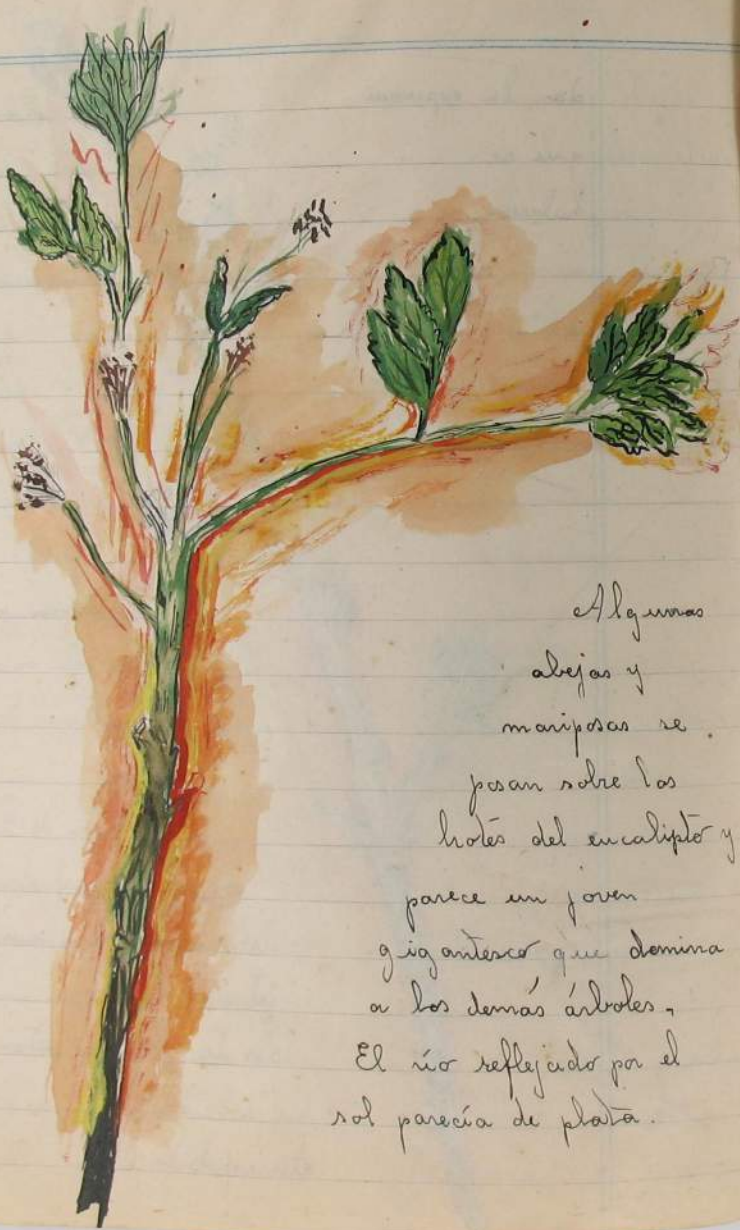 Algunas
abejas y
mariposas se
posan sobre los
brotes del eucalipto y
parece un joven
gigantesco que domina
a los demás árboles.
El río reflejado por el
sol parecía de plata.